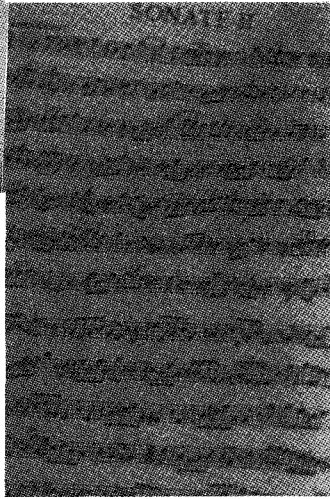 SONATE II